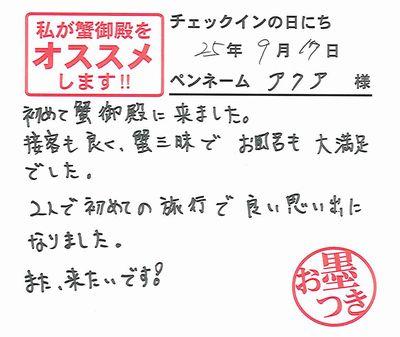 私が蟹御殿を
オススメ
します!!
チェックインの日にち
25年9月17日
ペンネーム アクア 様
初めて蟹御殿に来ました。
接客も良く、蟹三昧で お風呂も 大満足
でした。
2人で初めての旅行で良い思い出に
なりました。
また、来たいです!
お墨つき